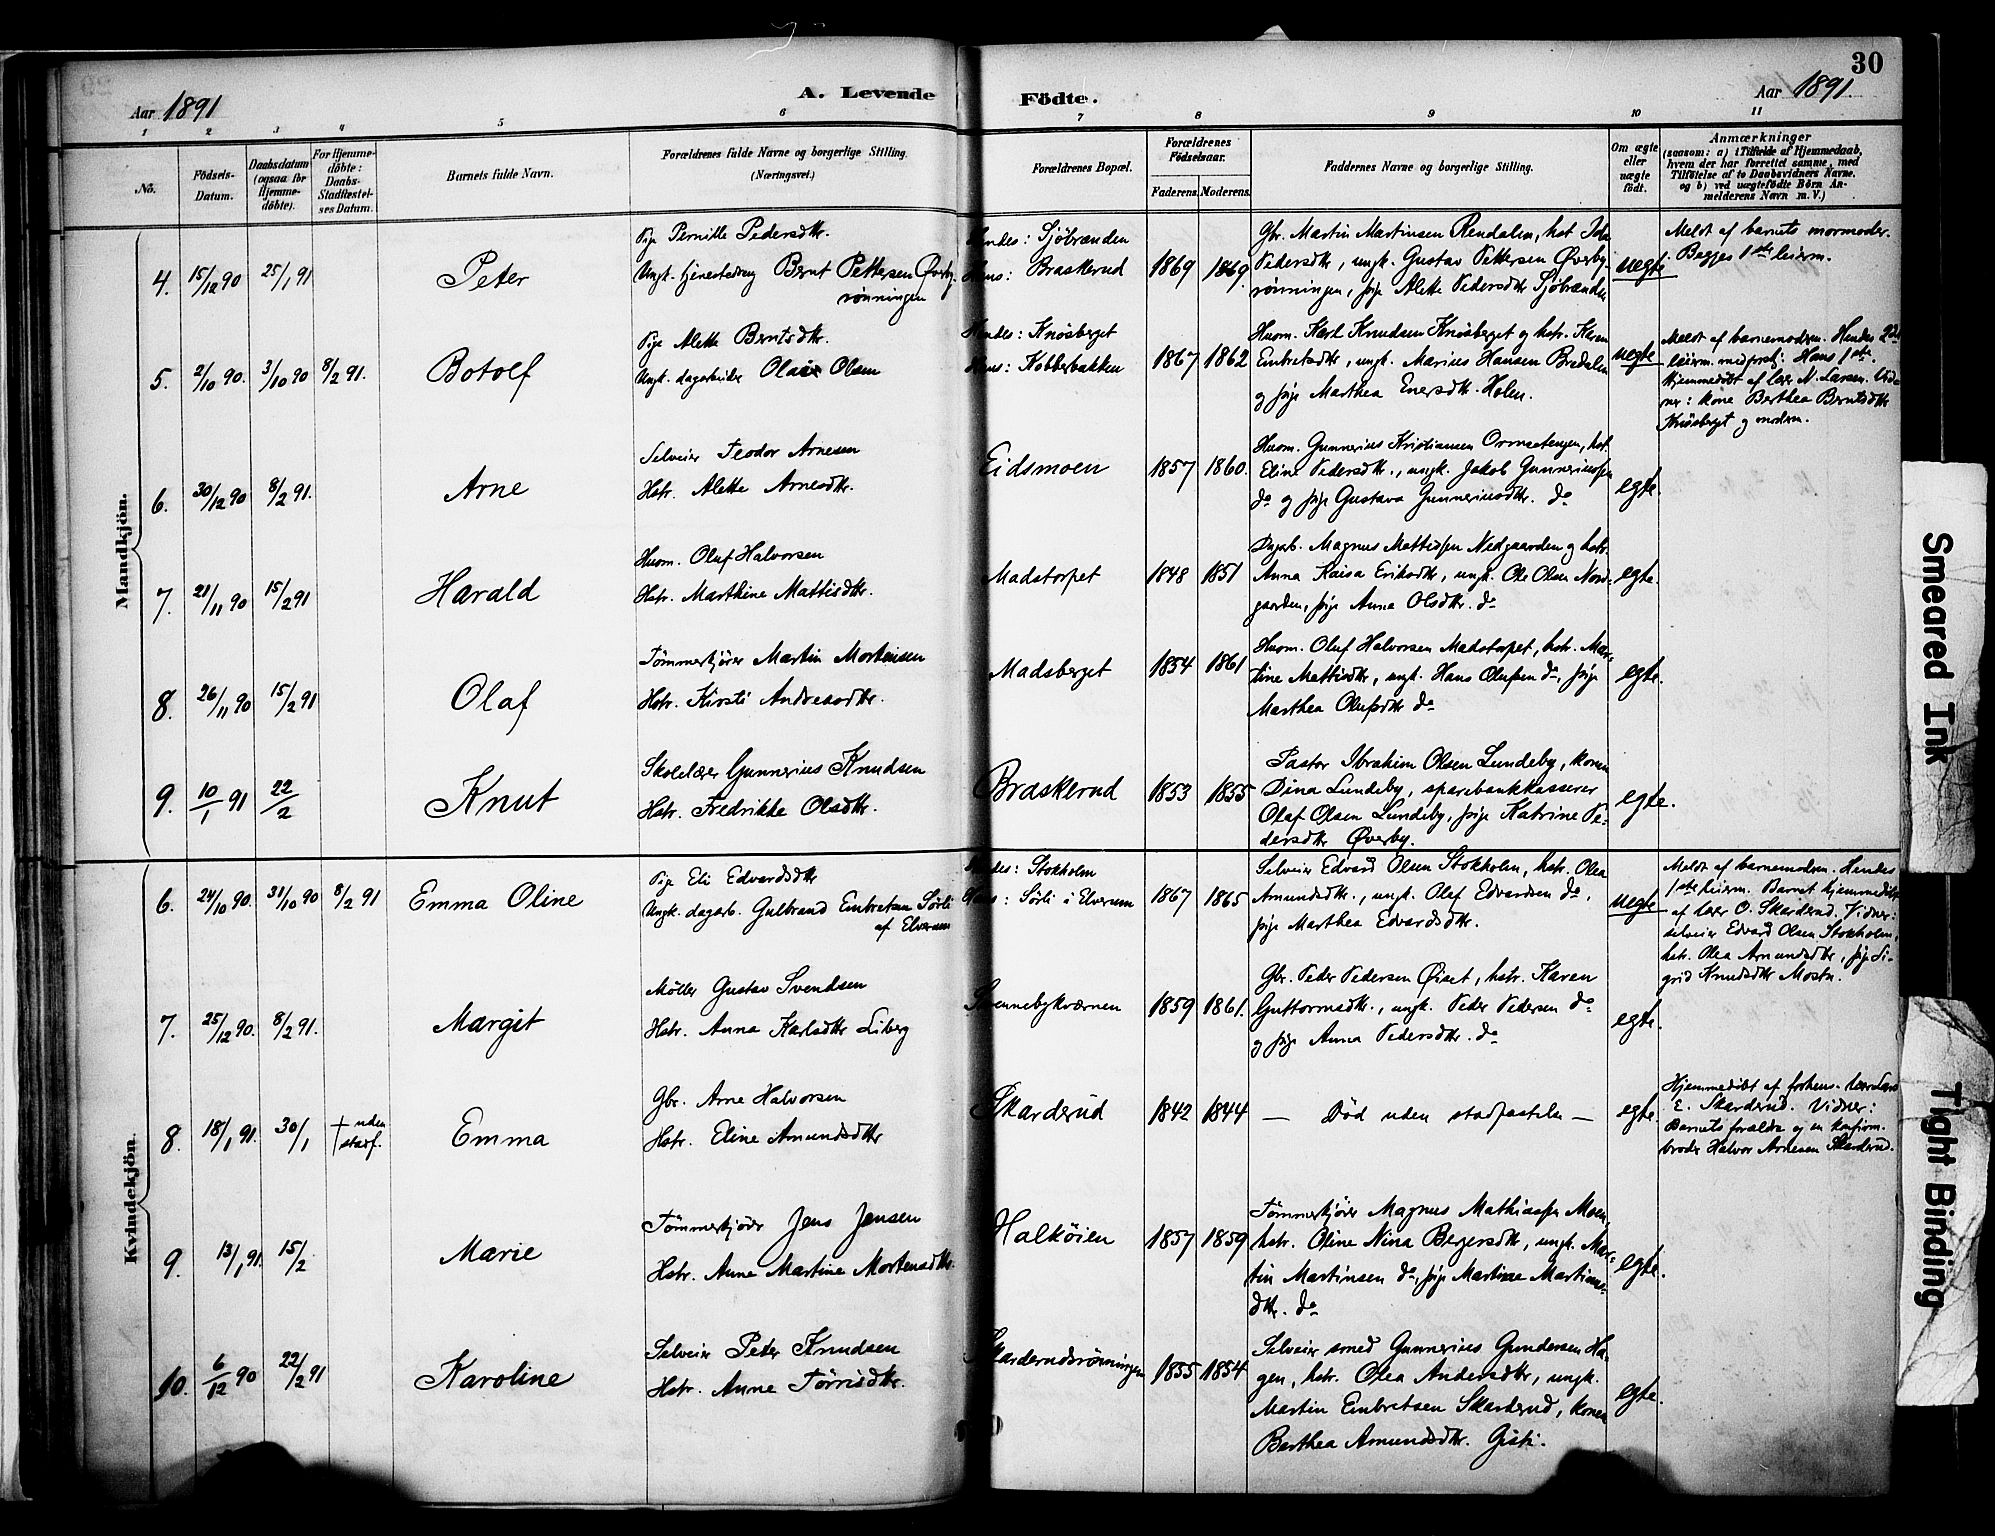 30
Aar 1891
A. Levende Födte.
Aar 1891.
1 2 3 4 5 6 7 8 9 10 11
No.
Födsels-Datum.
Daabsdatum (ogsaa for Hjemme-döbte).
For Hjemme-döbte: Daabs-Stadfæstel-ses Datum.
Barnets fulde Navn.
Forældrenes fulde Navne og borgerlige Stilling. (Næringsvei.)
Forældrenes Bopæl.
Forældrenes Födselsaar.
Faderens. Moderens.
Faddernes Navne og borgerlige Stilling.
Om ægte eller uægte födt.
Anmærkninger
(saasom: a) i Tilfælde af Hjemmedaab,
hvem der har forrettet samme, med
Tilföielse af to Daabsvidners Navne,
og b) ved uægtefödte Börn An-
melderens Navn m. V.)
Mandkjön.
4. 15/12 90 25/1 91 Peter
Pige Pernille Pedersdtr.
Ungk. tjenestedreng Bernt Pettersen Øverby-
rønningen
Hendes: Sjøbrænden
Hans: Braskerud
1869 1869.
Gbr. Martin Martinsen Rendalen, hst. Ida
Pedersdtr., ungk. Gustav Pettersen Øverby-
rønningen, pige Alette Pedersdtr Sjøbrænden
uegte
Meldt af barnets mormoder.
Begges 1ste leierm.
5. 2/10 90. 3/10 90 8/2 91. Botolf
Pige Alette Berntsdtr.
Ungk. dagarbeider Olaie Olsen
Hendes: Knøsberget
Hans: Kobberbakken
1867 1862
Husm. Karl Knudsen Knøsberget og hstr. Karen
Embretsdtr., ungk. Marius Hansen Bredalen
og pige Marthea Enersdtr. Holen.
uegte
Meldt af barnemodren. Hendes 2det
leierm. med prof; Hans 1ste.
Hjemmedøbt af lærer N. Larsen. Vid-
ner: kone Berthea Berntsdtr
Knøsberget og modren.
6. 30/12 90 8/2 91. Arne
Selveier Teodor Arnesen
Hstr. Alette Arnesdtr.
Eidsmoen
1857 1860.
Husm. Gunnerius Kristiansen Ormsetengen, hst.
Eline Pedersdtr., ungk. Jakob Gunneriussen
do og pige Gustava Gunneriusdtr. do
egte.
7. 21/11 90 15/2 91 Harald
Husm. Oluf Halvorsen
Hstr. Marthine Mattisdtr.
Madstorpet
1848 1851
Dagab. Magnus Mattissen Nedgaarden og hstr.
Anna Kaisa Eriksdtr., ungk. Ole Olsen Nord-
gaarden, pige Anna Olsdtr. do
egte.
8. 26/11 90 15/2 91 Olaf
Tømmerkjører Martin Mortensen
Hstr. Kirsti Andreasdtr.
Madsberget
1854 1861
Husm. Oluf Halvorsen Madstorpet, hstr. Mar-
tine Mattisdtr., ungk. Hans Olufsen do, pige
Marthea Olufsdtr do
egte.
9. 10/1 91 22/2 Knut
Skolelærer Gunnerius Knudsen
Hstr. Fredrikke Olsdtr.
Braskerud
1853 1855
Pastor Ibrahim Olsen Lundeby, konen
Dina Lundeby, sparebankkasserer
Olaf Olsen Lundeby, pige Katrine Pe-
dersdtr Øverby.
egte.
Kvindekjön.
6. 24/10 90. 31/10 90 8/2 91 Emma Oline
Pige Eli Edvardsdtr
Ungk. dagarb. Gulbrand Embretsen Sörli
af Elverum
Hendes: Stokholm
Hans: Sørli i Elverum
1867 1865
Selveier Edvard Olsen Stokholm, hstr. Olea
Amundsdtr., ungk. Olaf Edvardsen do,
pige Marthea Edvardsdtr.
uegte
Meldt af barnemodren. Hendes
1ste leierm. Barnet hjemmedøbt
af lærer O. Skarderud. Vidner:
selveier Edvard Olsen Stokholm,
hstr. Olea Amundsdtr, pige Si-
grid Knudsdtr Mostu.
7. 25/12 90. 8/2 91. Margit
Møller Gustav Svendsen
Hstr. Anna Karlsdtr Liberg
Svennebykværnen
1859 1861.
Gbr. Peder Pedersen Øiset, hstr. Karen
Guttormsdtr., ungk. Peder Pedersen do
og pige Anna Pedersdtr. do
egte.
8. 18/1 91. 30/1 † uden stadf. Emma
Gbr. Arne Halvorsen
Hstr. Eline Amundsdtr
Skarderud
1842 1844
— Död uden stadfæstelse —
egte.
Hjemmedøbt af forhenv. lærer Lars
E. Skarderud. Vidner:
Barnets forældre og en konfirm.
broder Halvor Arnesen Skarderud.
9. 13/1 91. 15/2 Marie
Tømmerkjører Jens Jensen
Hstr. Anne Martine Mortensdtr.
Halkøien
1857 1859
Tømmerkjører Magnus Mathiassen Moen,
hstr. Oline Nina Bergersdtr, ungk. Mar-
tin Martinsen do, pige Martine Martins-
dtr. do
egte.
10. 6/12 90 22/2 91 Karoline
Selveier Peter Knudsen
Hstr. Anne Tørrisdtr.
Skarderudsrønningen
1855 1854
Selveier smed Gunnerius Gundersen Ha-
gen, hstr. Olea Andersdtr, ungk.
Martin Embretsen Skarderud, konen
Berthea Amundsdtr. Gisti.
egte.
Smeared Ink
Tight Binding